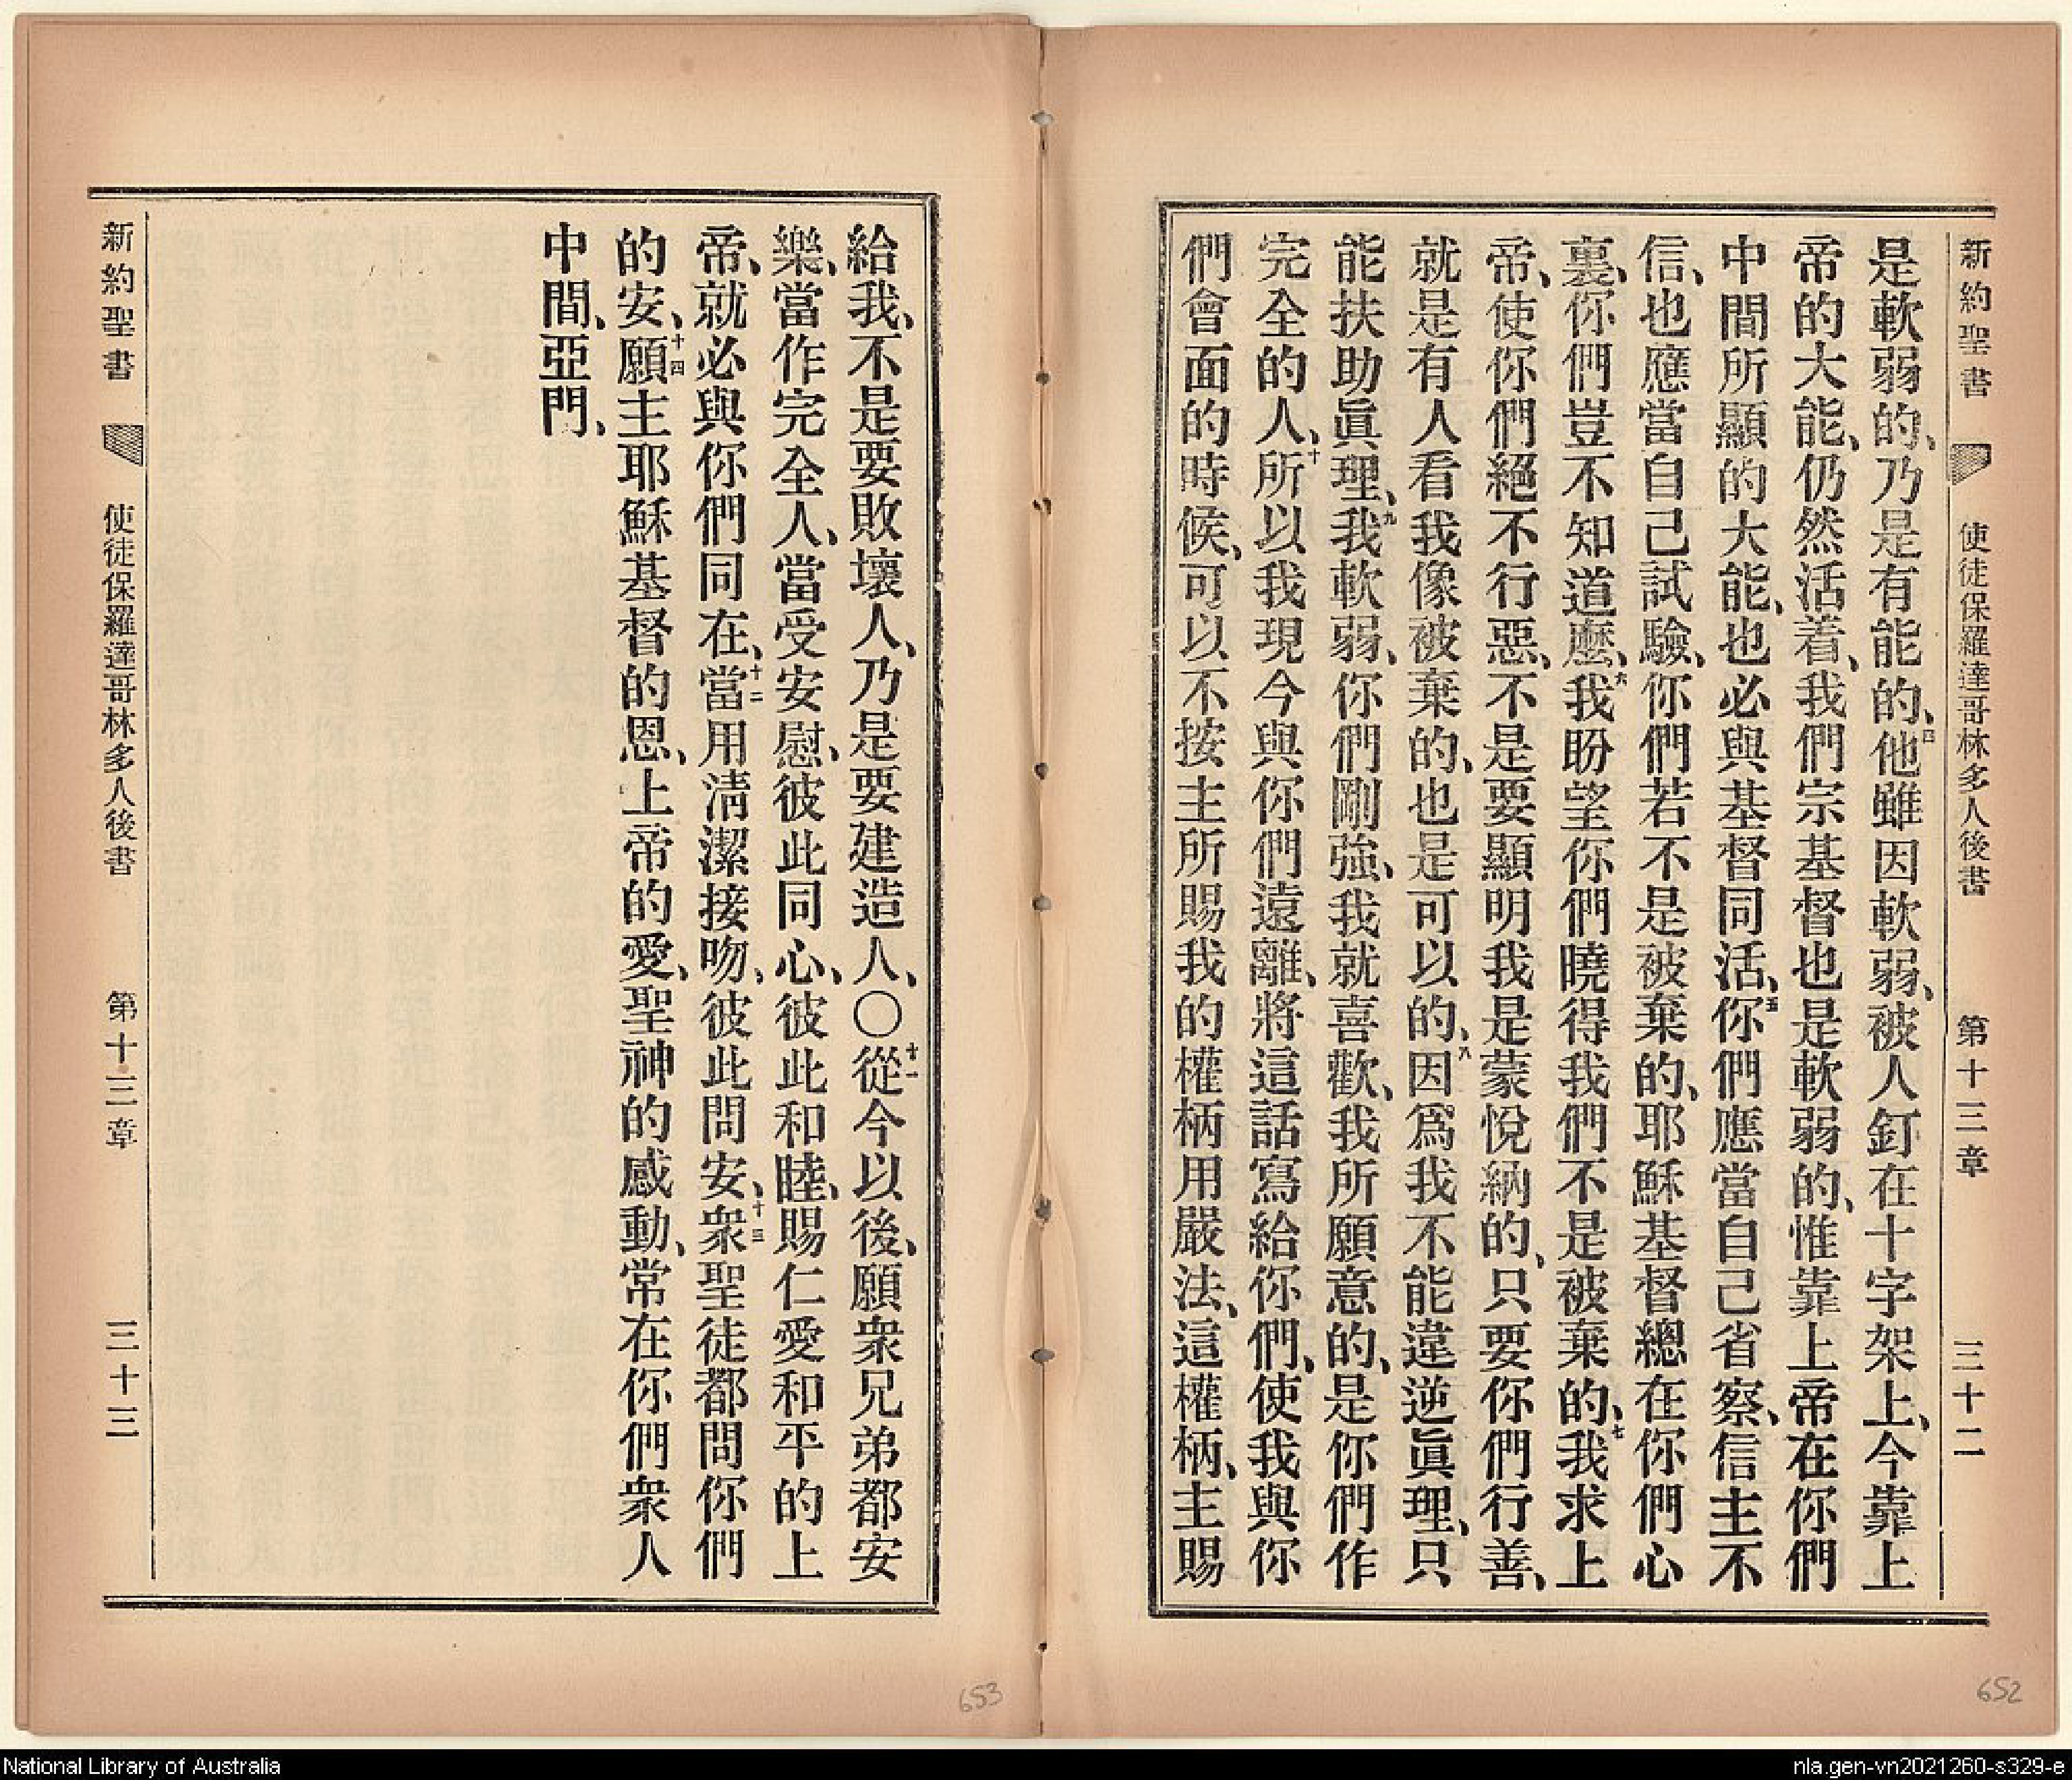 新約聖書 使徒保羅達哥林多人後書 第十三章 三十二
是軟弱的、乃是有能的、四他雖因軟弱、被人釘在十字架上、今靠上
帝的大能、仍然活着、我們宗基督也是軟弱的、惟靠上帝在你們
中間所顯的大能、也必與基督同活、五你們應當自己省察、信主不
信、也應當自己試驗、你們若不是被棄的、耶穌基督總在你們心
裏、你們豈不知道麽、六我盼望你們曉得我們不是被棄的、七我求上
帝、使你們絕不行惡、不是要顯明我是蒙悅納的、只要你們行善、
就是有人看我像被棄的、也是可以的、八因爲我不能違逆眞理、只
能扶助眞理、九我軟弱、你們剛強、我就喜歡、我所願意的、是你們作
完全的人、十所以我現今與你們遠離、將這話寫給你們、使我與你
們會面的時候、可以不按主所賜我的權柄用嚴法、這權柄、主賜
給我、不是要敗壞人、乃是要建造人、〇十一從今以後、願衆兄弟都安
樂、當作完全人、當受安慰、彼此同心、彼此和睦、賜仁愛和平的上
帝、就必與你們同在、十二當用清潔接吻、彼此問安、十三衆聖徒都問你們
的安、十四願主耶穌基督的恩、上帝的愛、聖神的感動、常在你們衆人
中間、亞門、
新約聖書 使徒保羅達哥林多人後書 第十三章 三十三
653
652
National Library of Australia
nla.gen-vn2021260-s329-e